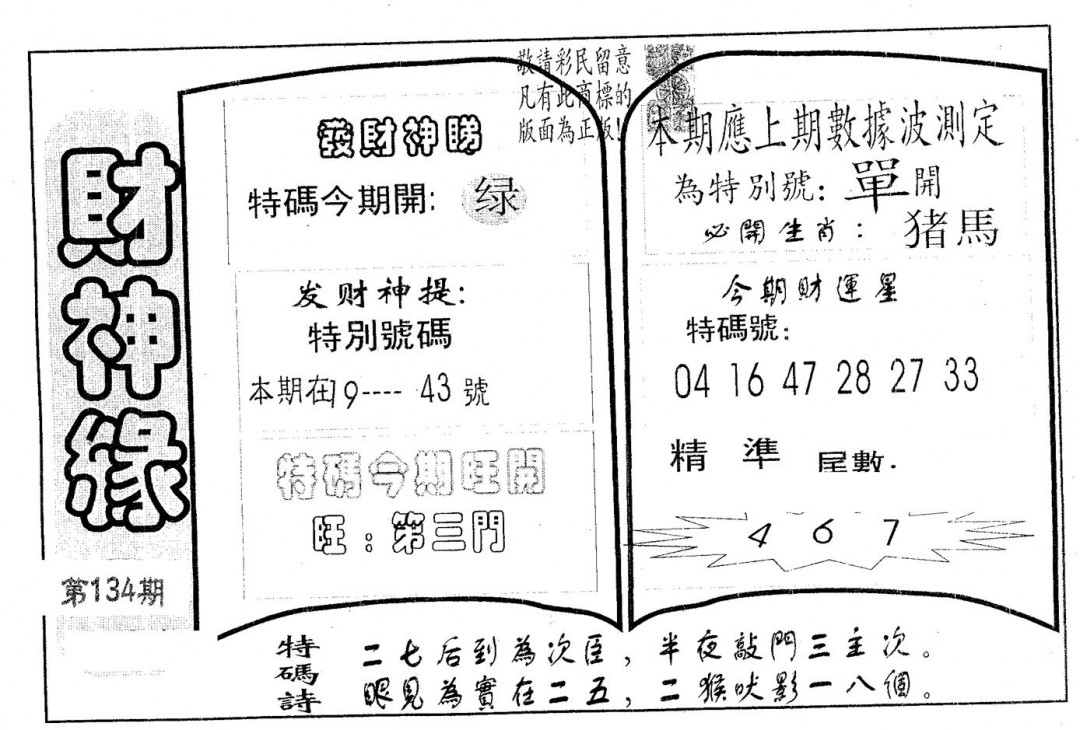 財神緣
第134期
敬請彩民留意
凡有此商標的
版面為正版!
發財神睇
特碼今期開: 绿
发财神提:
特別號碼
本期在19---- 43 號
特碼今期旺開
旺:第三門
本期應上期數據波測定
為特別號: 單開
必開生肖: 猪馬
今期財運星
特碼號:
04 16 47 28 27 33
精 準 尾數.
4 6 7
特碼詩
二七后到為次臣，半夜敲門三主次。
眼見為實在二五，二猴吠影一八個。